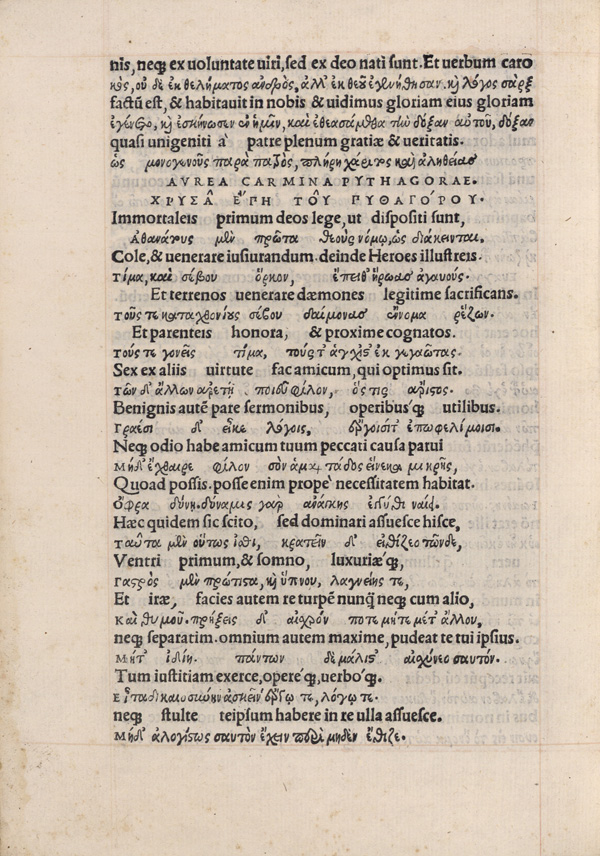 nis, neq; ex uoluntate uiri, sed ex deo nati sunt. Et uerbum caro
κὸς, οὐ δὲ ἐκ θελήματος ἀνδρὸς, ἀλλ' ἐκ θεοῦ ἐγεννήθησαν. καὶ λόγος σὰρξ
factū est, & habitauit in nobis & uidimus gloriam eius gloriam
ἐγένετο, καὶ ἐσκήνωσεν ἐν ἡμῖν, καὶ ἐθεασάμεθα τὴν δόξαν αὐτοῦ, δόξαν
quasi unigeniti à patre plenum gratiæ & ueritatis.
ὡς μονογενοῦς παρὰ πατρὸς, πλήρη χάριτος καὶ ἀληθείας
AVREA CARMINA PYTHAGORAE.
ΧΡΥΣΑ͂ ἜΠΗ ΤΟΥ͂ ΠΥΘΑΓΌΡΟΥ.
Immortaleis primum deos lege, ut dispositi sunt,
Ἀθανάτους μὲν πρῶτα θεοὺς νόμῳ, ὡς διάκεινται.
Cole, & uenerare iusiurandum. deinde Heroes illustreis.
τίμα, καὶ σέβου ὅρκον, ἔπειθ' ἥρωας ἀγαυούς.
Et terrenos uenerare dæmones legitime sacrificans.
τούς τε καταχθονίους σέβου δαίμονας ἔννομα ῥέζων.
Et parenteis honora, & proxime cognatos.
τούς τε γονεῖς τίμα, τούς τ' ἄγχιστ' ἐκγεγαῶτας.
Sex ex aliis uirtute fac amicum, qui optimus sit.
τῶν δ' ἄλλων ἀρετῇ ποιοῦ φίλον, ὅστις ἄριστος.
Benignis autē pare sermonibus, operibus'q; utilibus.
Γραέσι δ' εἶκε λόγοις, ἔργοισί τ' ἐπωφελίμοισι.
Neq; odio habe amicum tuum peccati causa parui
Μὴ δ' ἔχθαιρε φίλον σὸν ἁμαρτάδος εἵνεκα μικρῆς,
Quoad possis. posse enim propè necessitatem habitat.
Ὄφρα δύνῃ. δύναμις γὰρ ἀνάγκης ἐγγύθι ναίει.
Hæc quidem sic scito, sed dominari assuesce hisce,
ταῦτα μὲν οὕτως ἴσθι, κρατεῖν δ' εἰθίζεο τῶνδε,
Ventri primum, & somno, luxuriæ'q;,
Γαστρὸς μὲν πρώτιστα, καὶ ὕπνου, λαγνείης τε,
Et iræ, facies autem re turpē nunq̃ neq; cum alio,
καὶ θυμοῦ. πρήξεις δ' αἰσχρόν ποτε μήτε μετ' ἄλλου,
neq; separatim. omnium autem maxime, pudeat te tui ipsius.
Μήτ' ἰδίῃ. πάντων δὲ μάλιστ' αἰσχύνεο σαυτόν.
Tum iustitiam exerce, opere'q;, uerbo'q;.
Εἶτα δικαιοσύνην ἀσκεῖν ἔργῳ τε, λόγῳ τε.
neq; stulte teipsum habere in re ulla assuesce.
Μὴ δ' ἀλογίστως σαυτὸν ἔχειν περὶ μηδὲν ἔθιζε.